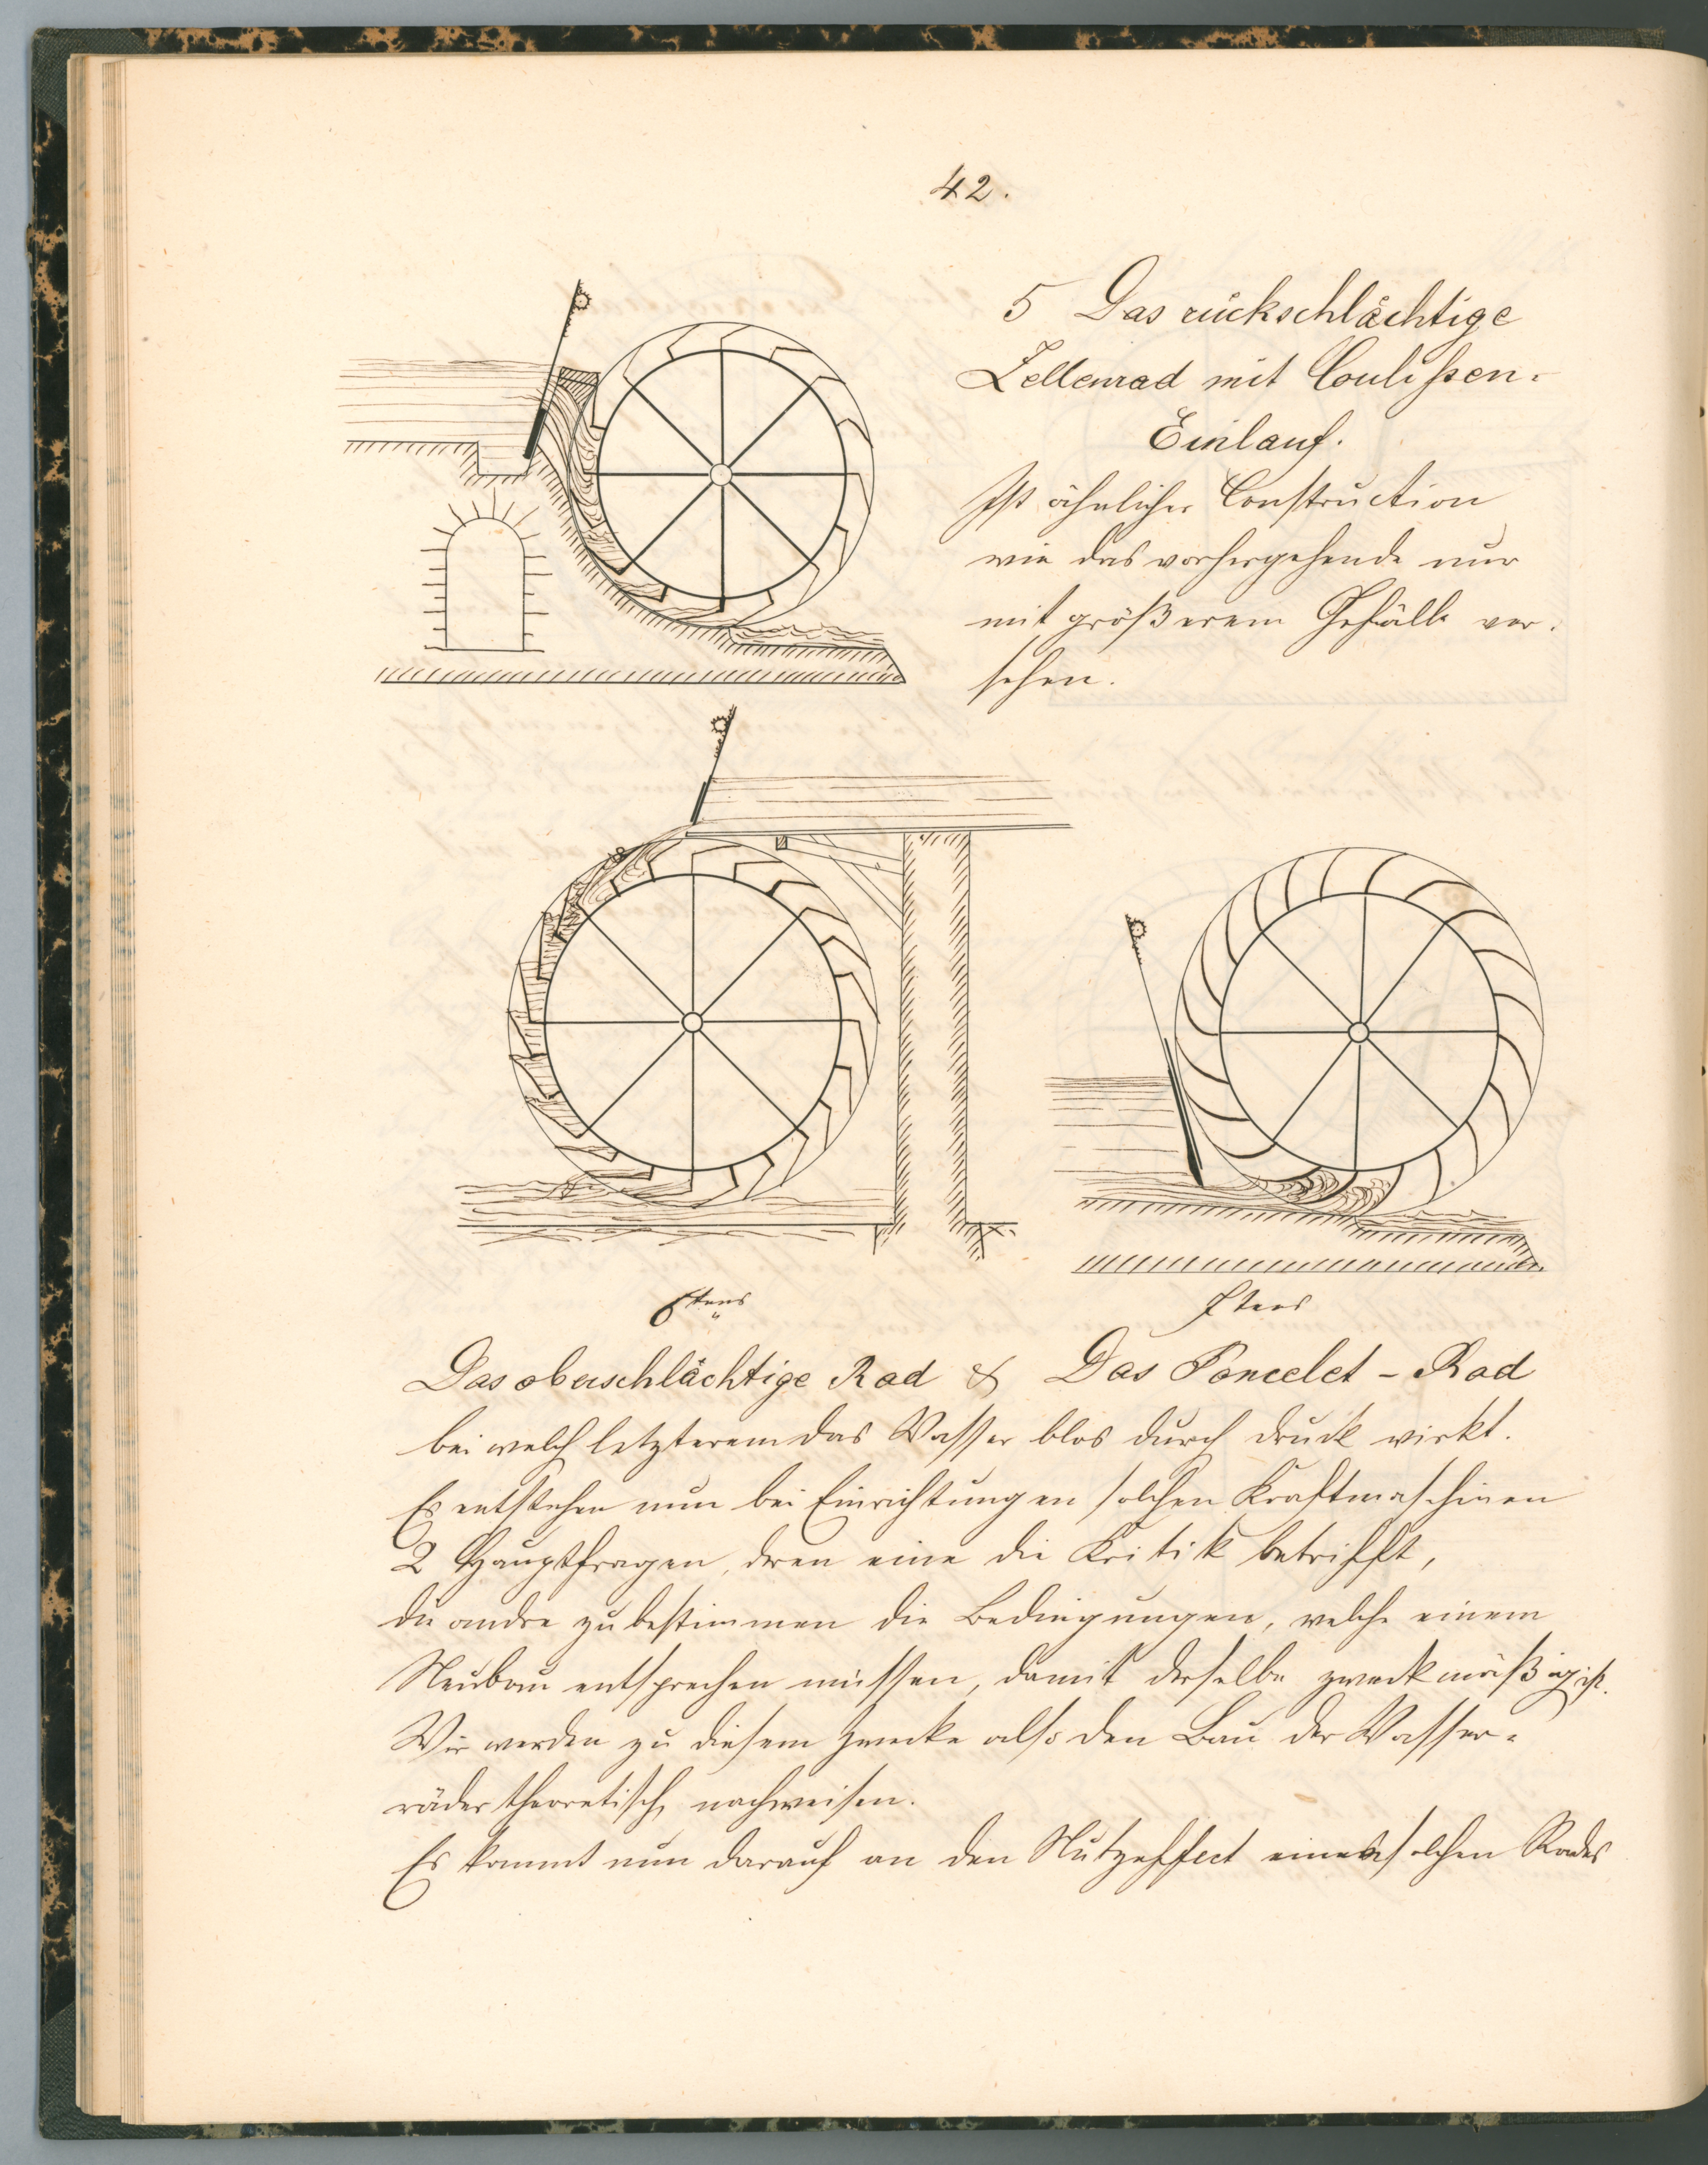 42.
5 Das rückschlächtige
Zellenrad mit Coulißen-
Einlauf.
Ist ähnlicher Construction
wie das vorhergehende nur
mit größerem Gefälle ver-
sehen.
6tens
7tens
Das oberschlächtige Rad & Das Poncelet-Rad
bei welch letzterem das Wasser blos durch druck wirkt.
Es entstehen nun bei Einrichtungen solchen Kraftmaschinen
2 Hauptfragen, dren eine die Kritik betrifft,
die andre zu bestimmen die Bedingungen, welche einem
Neubau entsprechen müssen, damit derselbe zweckmäßig ist.
Wir werden zu diesem Zwecke also den Bau der Wasser-
räder theoretisch nachweisen.
Es kommt nun darauf an den Nutzeffect eines solchen Rades